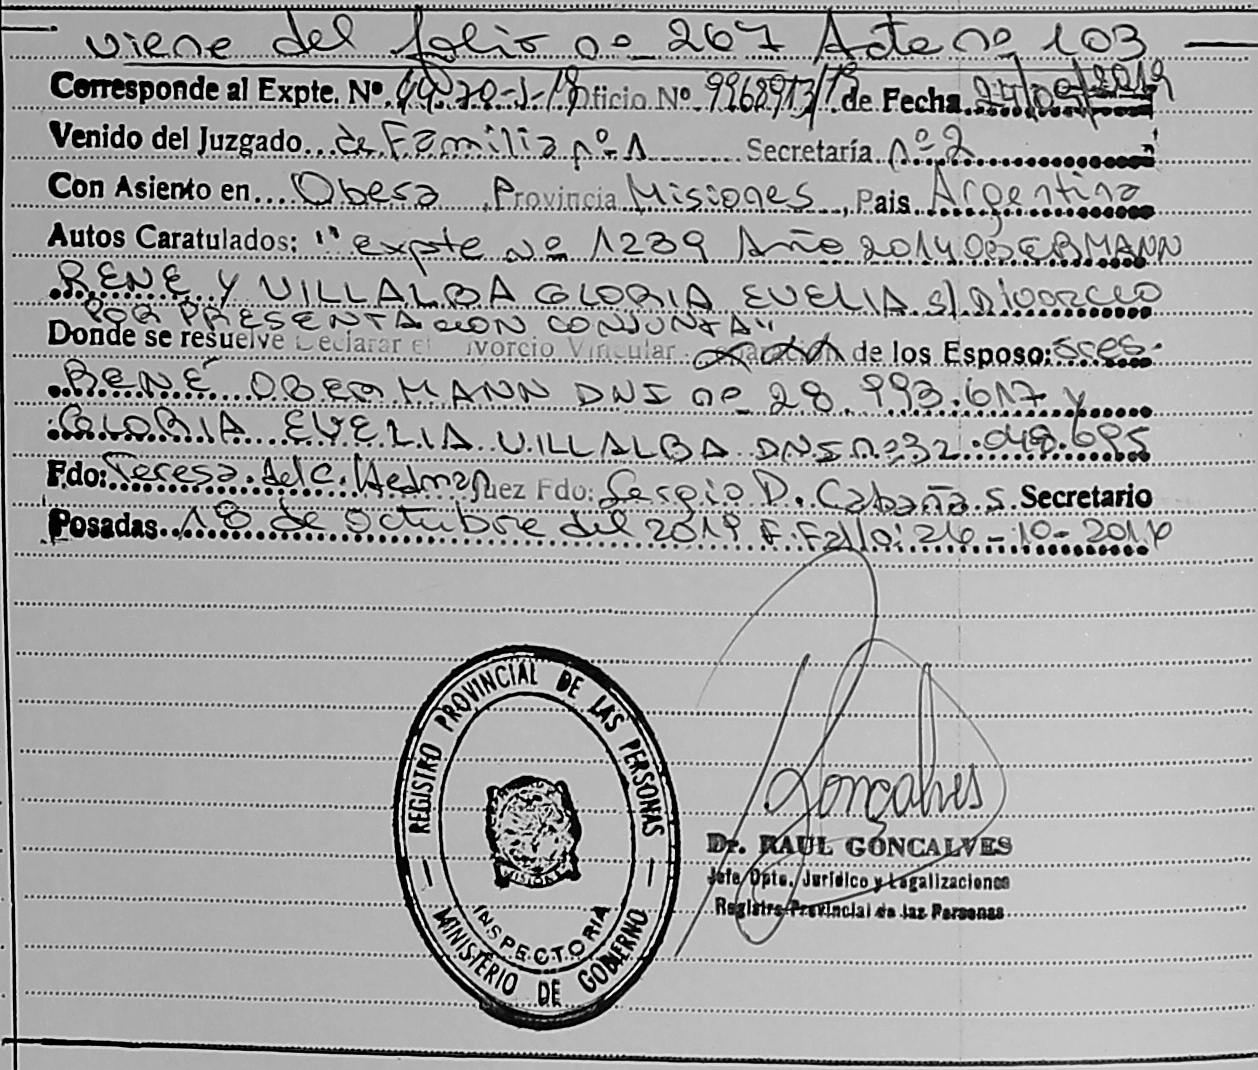 viene del folio nº 267 Acta nº 103
Corresponde al Expte. Nº Oficio Nº 9968913/19 de Fecha
Venido del Juzgado de Familia nº 1 Secretaría nº 2
Con Asiento en Obera, Provincia Misiones, Pais Argentina
Autos Caratulados: "expte nº 1239 Año 2014 OBERMANN
RENE Y VILLALBA GLORIA EVELIA s/ Divorcio
POR PRESENTACION CONJUNTA"
Donde se resuelve Declarar el Divorcio Vincular de los Esposo: sres.
RENÉ OBERMANN DNI nº 28.993.617 y
GLORIA EVELIA VILLALBA DNI nº 32.048.695
Fdo: Teresa del C. Hedman Juez Fdo: Sergio D. Cabaña s. Secretario
Posadas 18 de octubre del 2019 F. Fallo: 26-10-2016
REGISTRO PROVINCIAL DE LAS PERSONAS
MISIONES
INSPECTORIA
MINISTERIO DE GOBIERNO
Gonçalves
Dr. RAUL GONCALVES
Jefe Dpto. Jurídico y Legalizaciones
Registro Provincial de las Personas